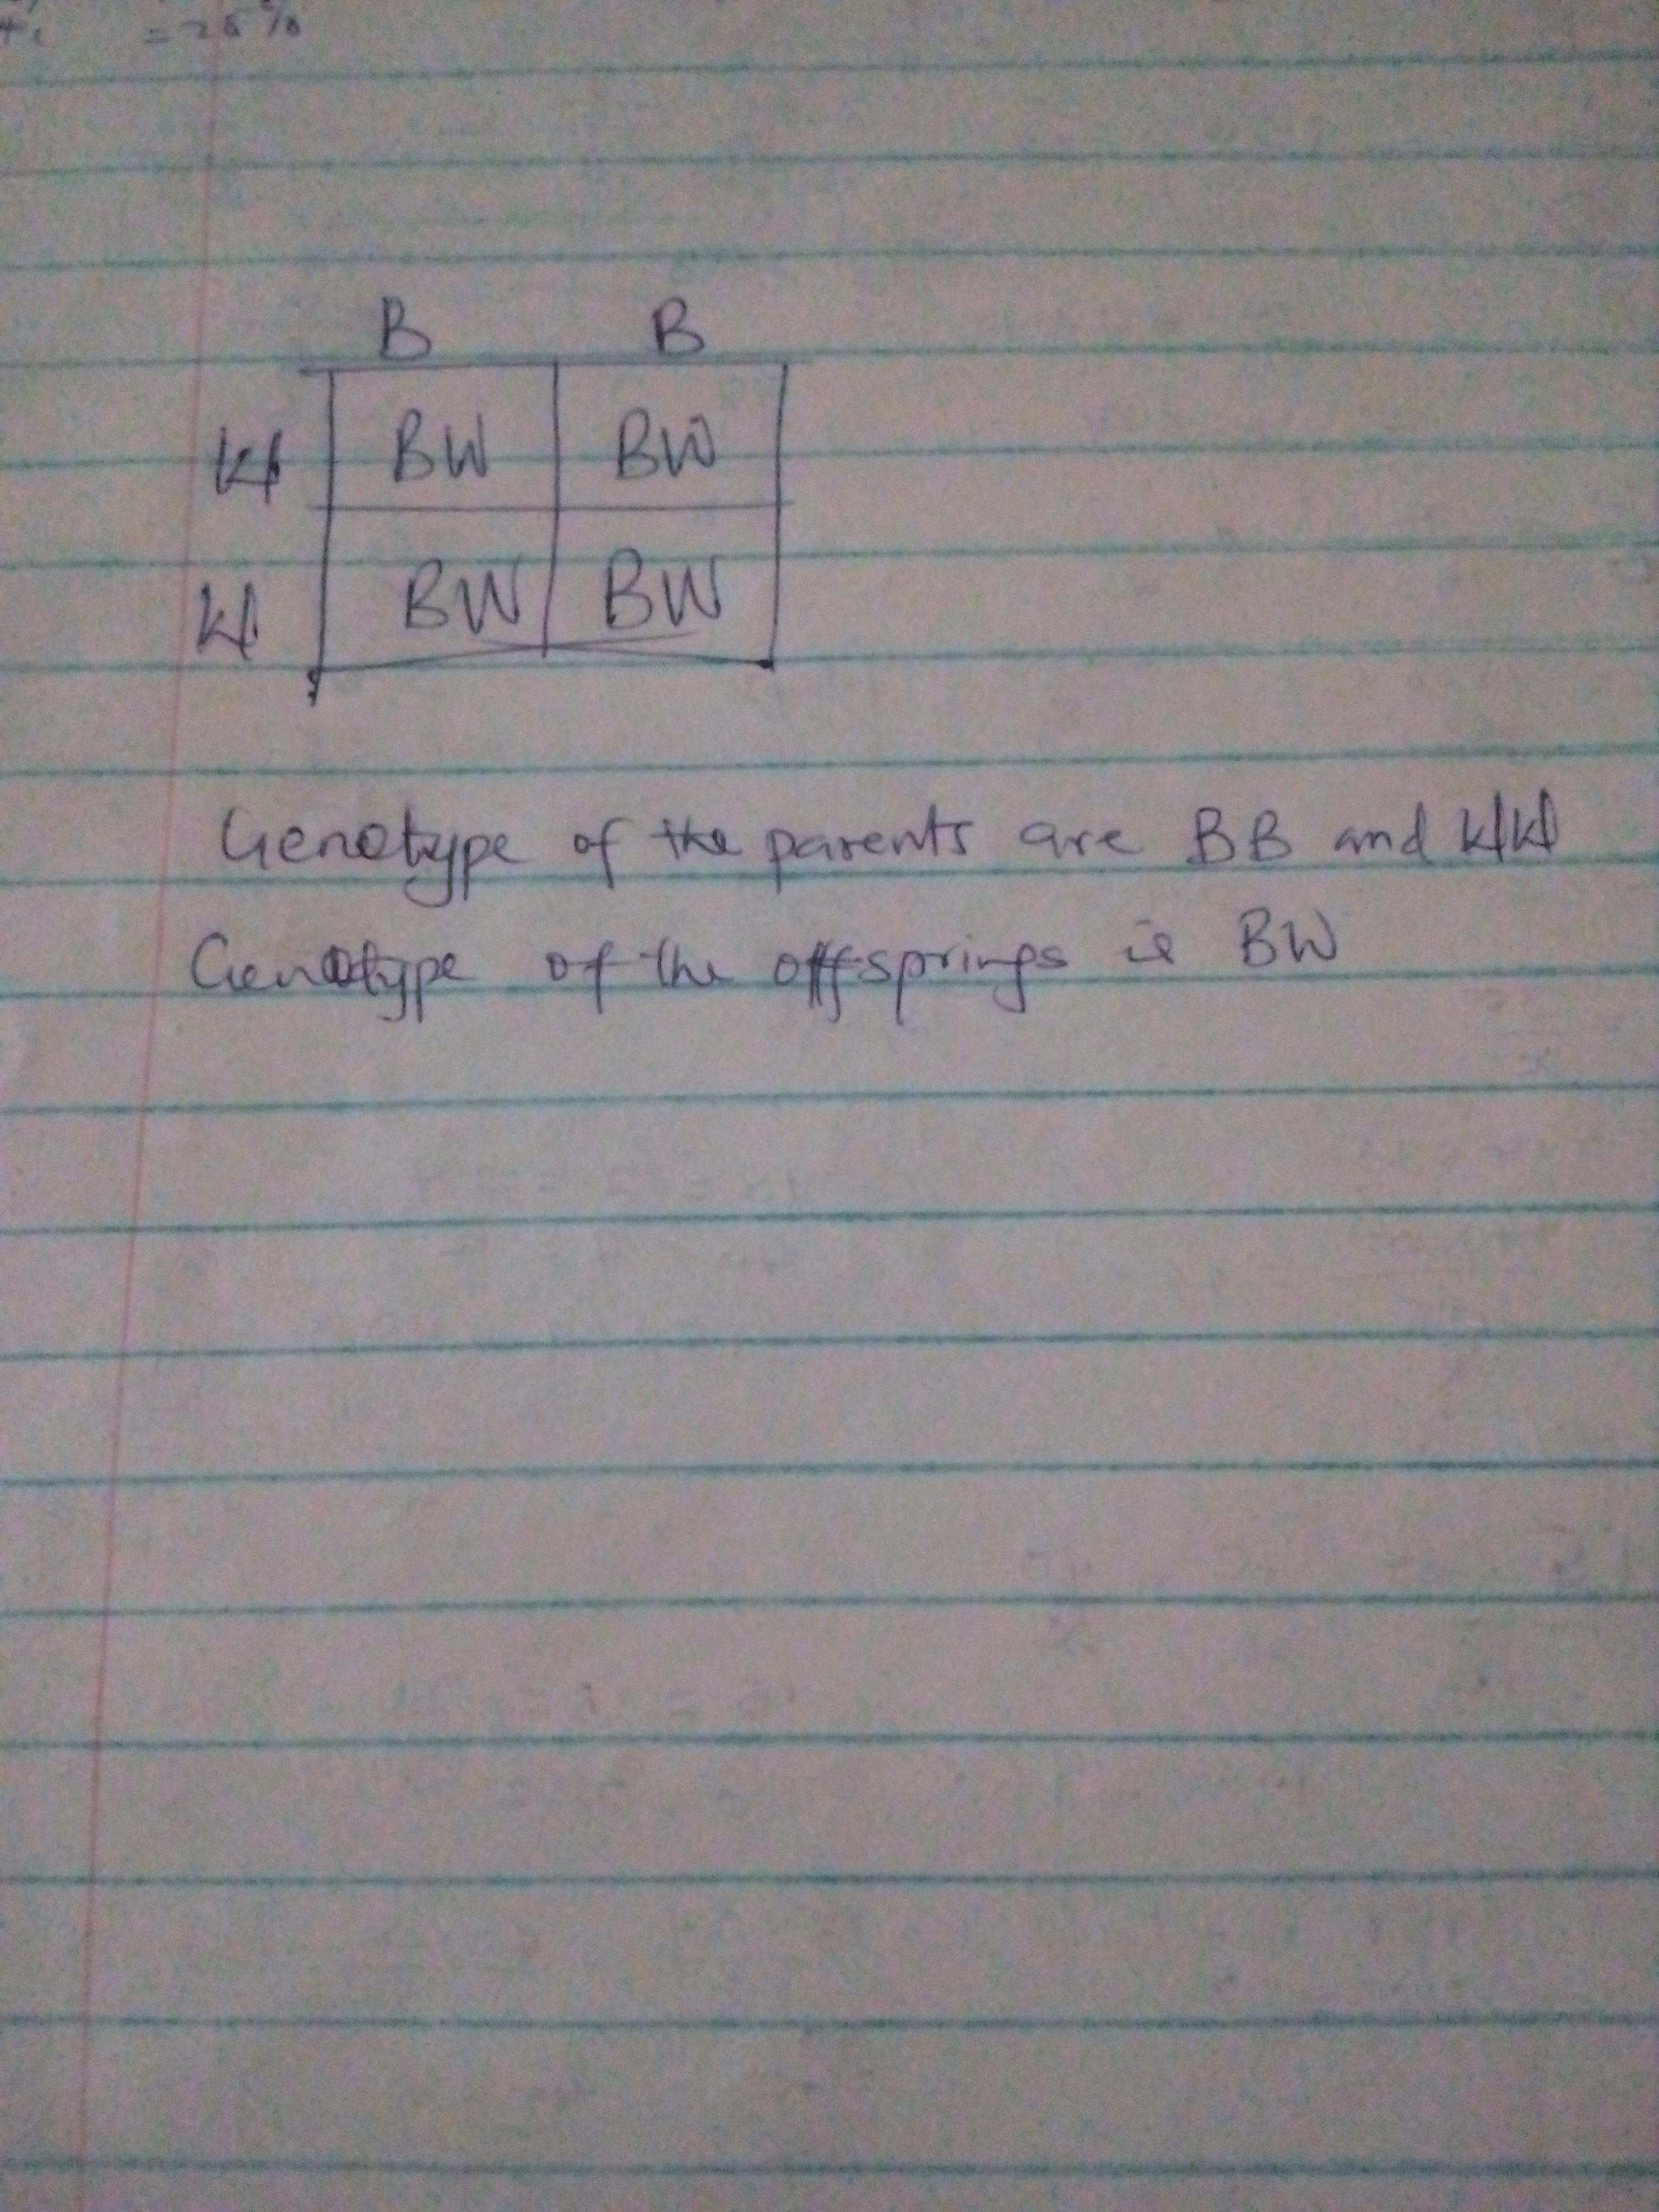 = 25%
B B
W BW BW
W BW BW
Genotype of the parents are BB and WW
Genotype of the offsprings is BW